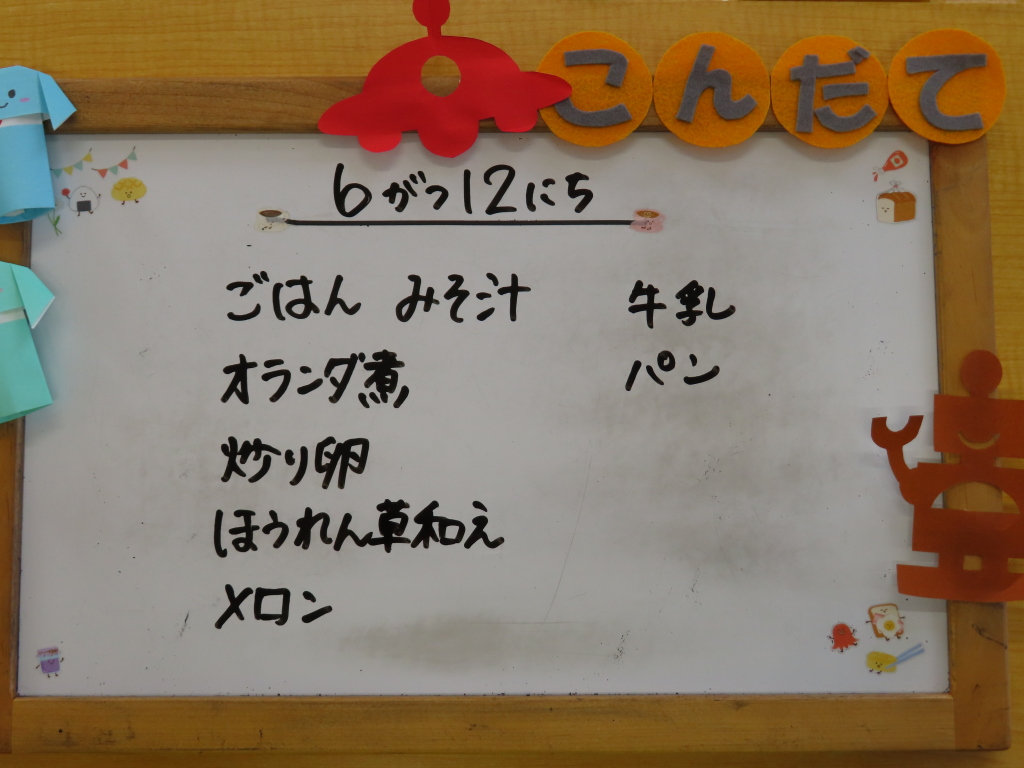 こんだて
6がつ12にち
ごはん みそ汁
オランダ煮
炒り卵
ほうれん草和え
メロン
牛乳
パン